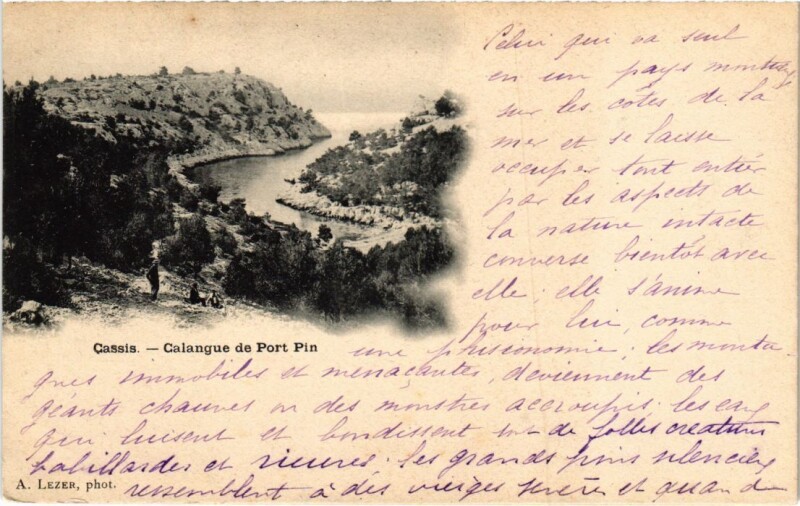 Celui qui va seul
en un pays montueux
sur les côtes de la
mer et se laisse
occuper tout entier
par les aspects de
la nature intacte
converse bientôt avec
elle; elle s'anime
pour lui, comme
Cassis. — Calangue de Port Pin
une phisionomie; les monta-
gnes immobiles et menaçantes, deviennent des
géants chauves ou des monstres accroupis. les eaux
qui luisent et bondissent sont de folles creatures
babillardes et rieuses, les grands pins silencieux
A. LEZER, phot.
ressemblent à des vierges sevères et quand